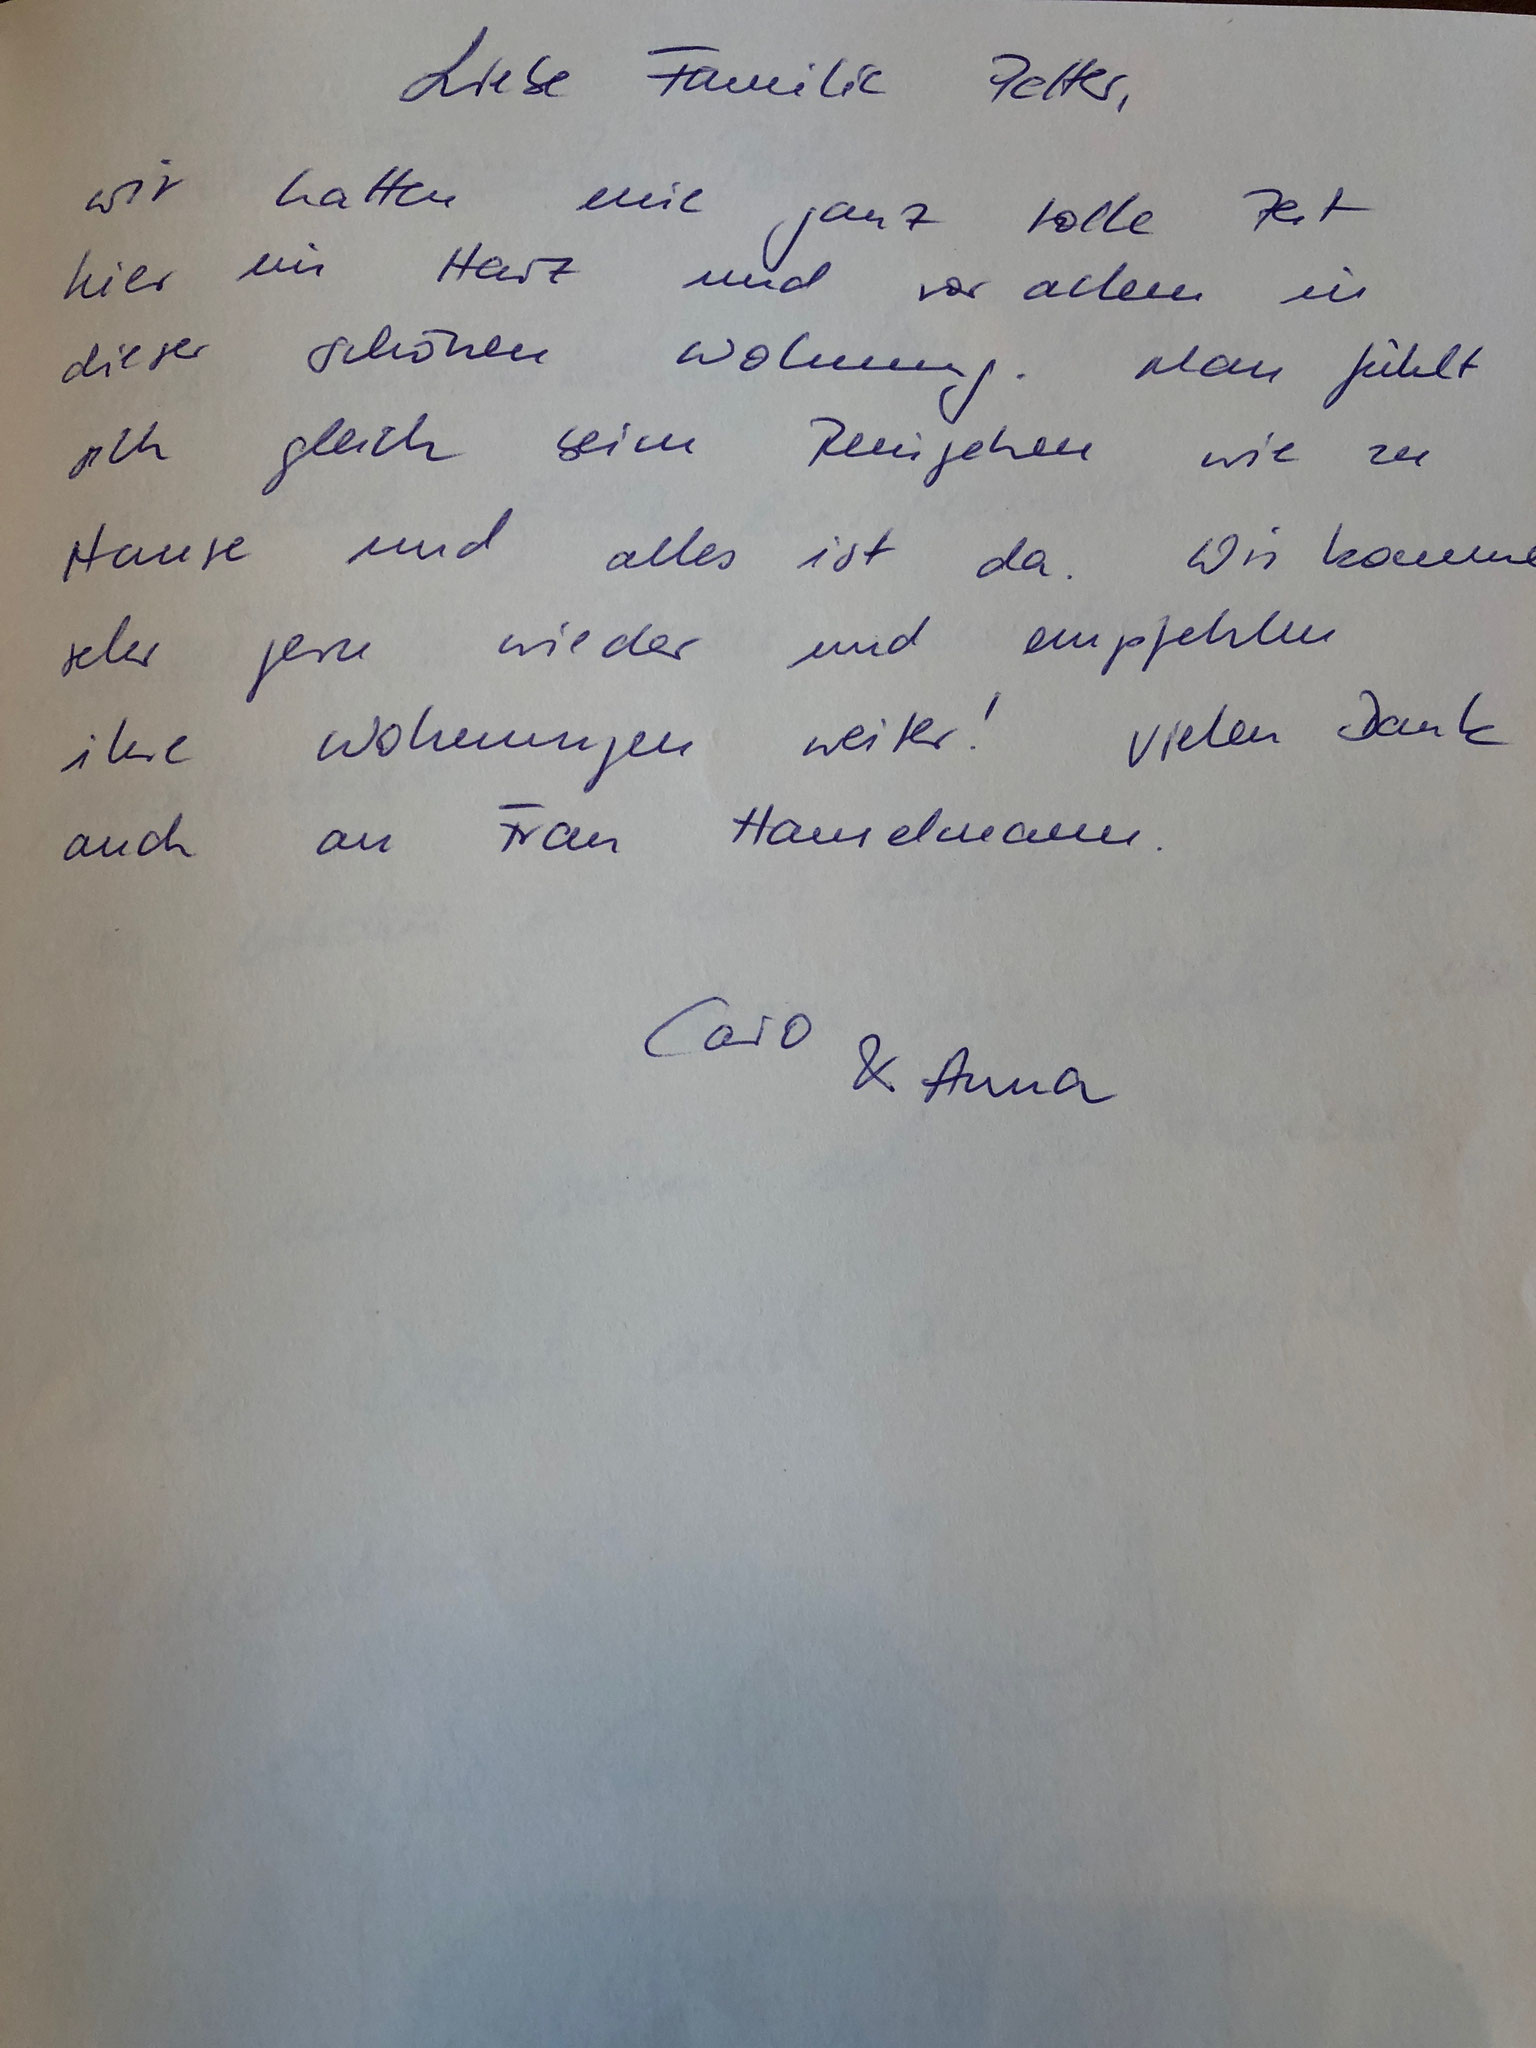 Liebe Familie Zetter,
wir hatten eine ganz tolle Zeit
hier im Harz und vor allem in
dieser schönen Wohnung. Man fühlt
sich gleich beim Reingehen wie zu
Hause und alles ist da. Wir komme
sehr gern wieder und empfehlen
ihre Wohnungen weiter! Vielen Dank
auch an Frau
Caro
& Anna